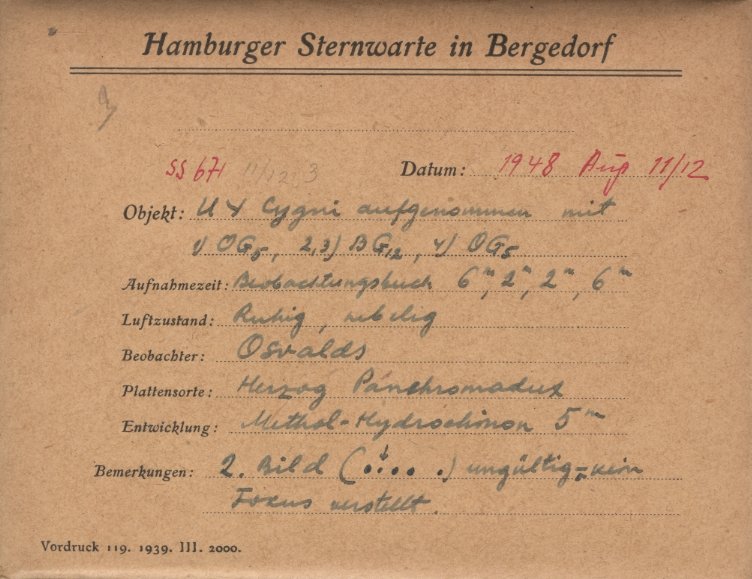 Hamburger Sternwarte in Bergedorf
SS 671 11/12 3 Datum: 1948 Aug 11/12
Objekt: U Y Cygni aufgenommen mit
1) OG5, 2,3) BG12, 4) OG5
Aufnahmezeit: Beobachtungsbuch 6m, 2m, 2m, 6m
Luftzustand: Ruhig, nebelig
Beobachter: Osvalds
Plattensorte: Herzog
Entwicklung: Methol-Hydrochinon 5m
Bemerkungen: 2. Bild ( ) ungültig
Fokus verstellt.
Vordruck 119. 1939. III. 2000.